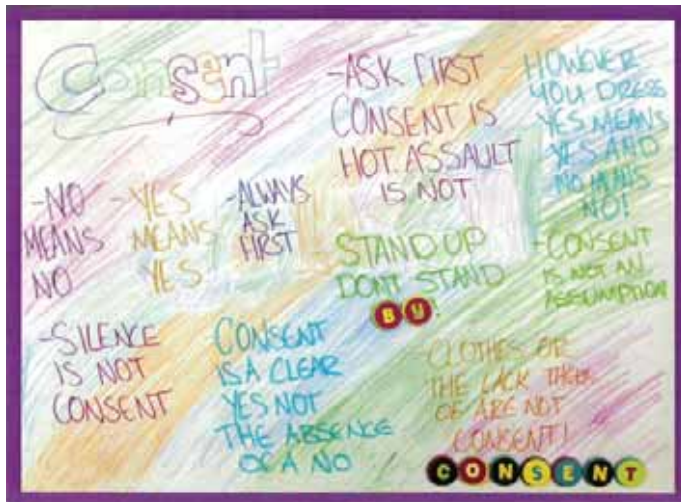 Consent
-ASK FIRST
CONSENT IS
HOT. ASSAULT
IS NOT
-HOWEVER
YOU DRESS
YES MEANS
YES AND
NO MEANS
NO!
-NO
MEANS
NO
-YES
MEANS
YES
-ALWAYS
ASK
FIRST
-STAND UP
DONT STAND
BY!
-CONSENT
IS NOT AN
ASSUMPTION
-SILENCE
IS NOT
CONSENT
CONSENT
IS A CLEAR
YES NOT
THE ABSENCE
OF A NO
-CLOTHES OR
THE LACK THERE
OF ARE NOT
CONSENT!
CONSENT